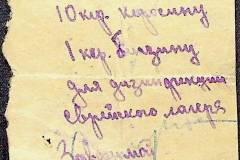 10 клр. керосину
1 кер. бензину
для дизинфекции
еврейского лагеря